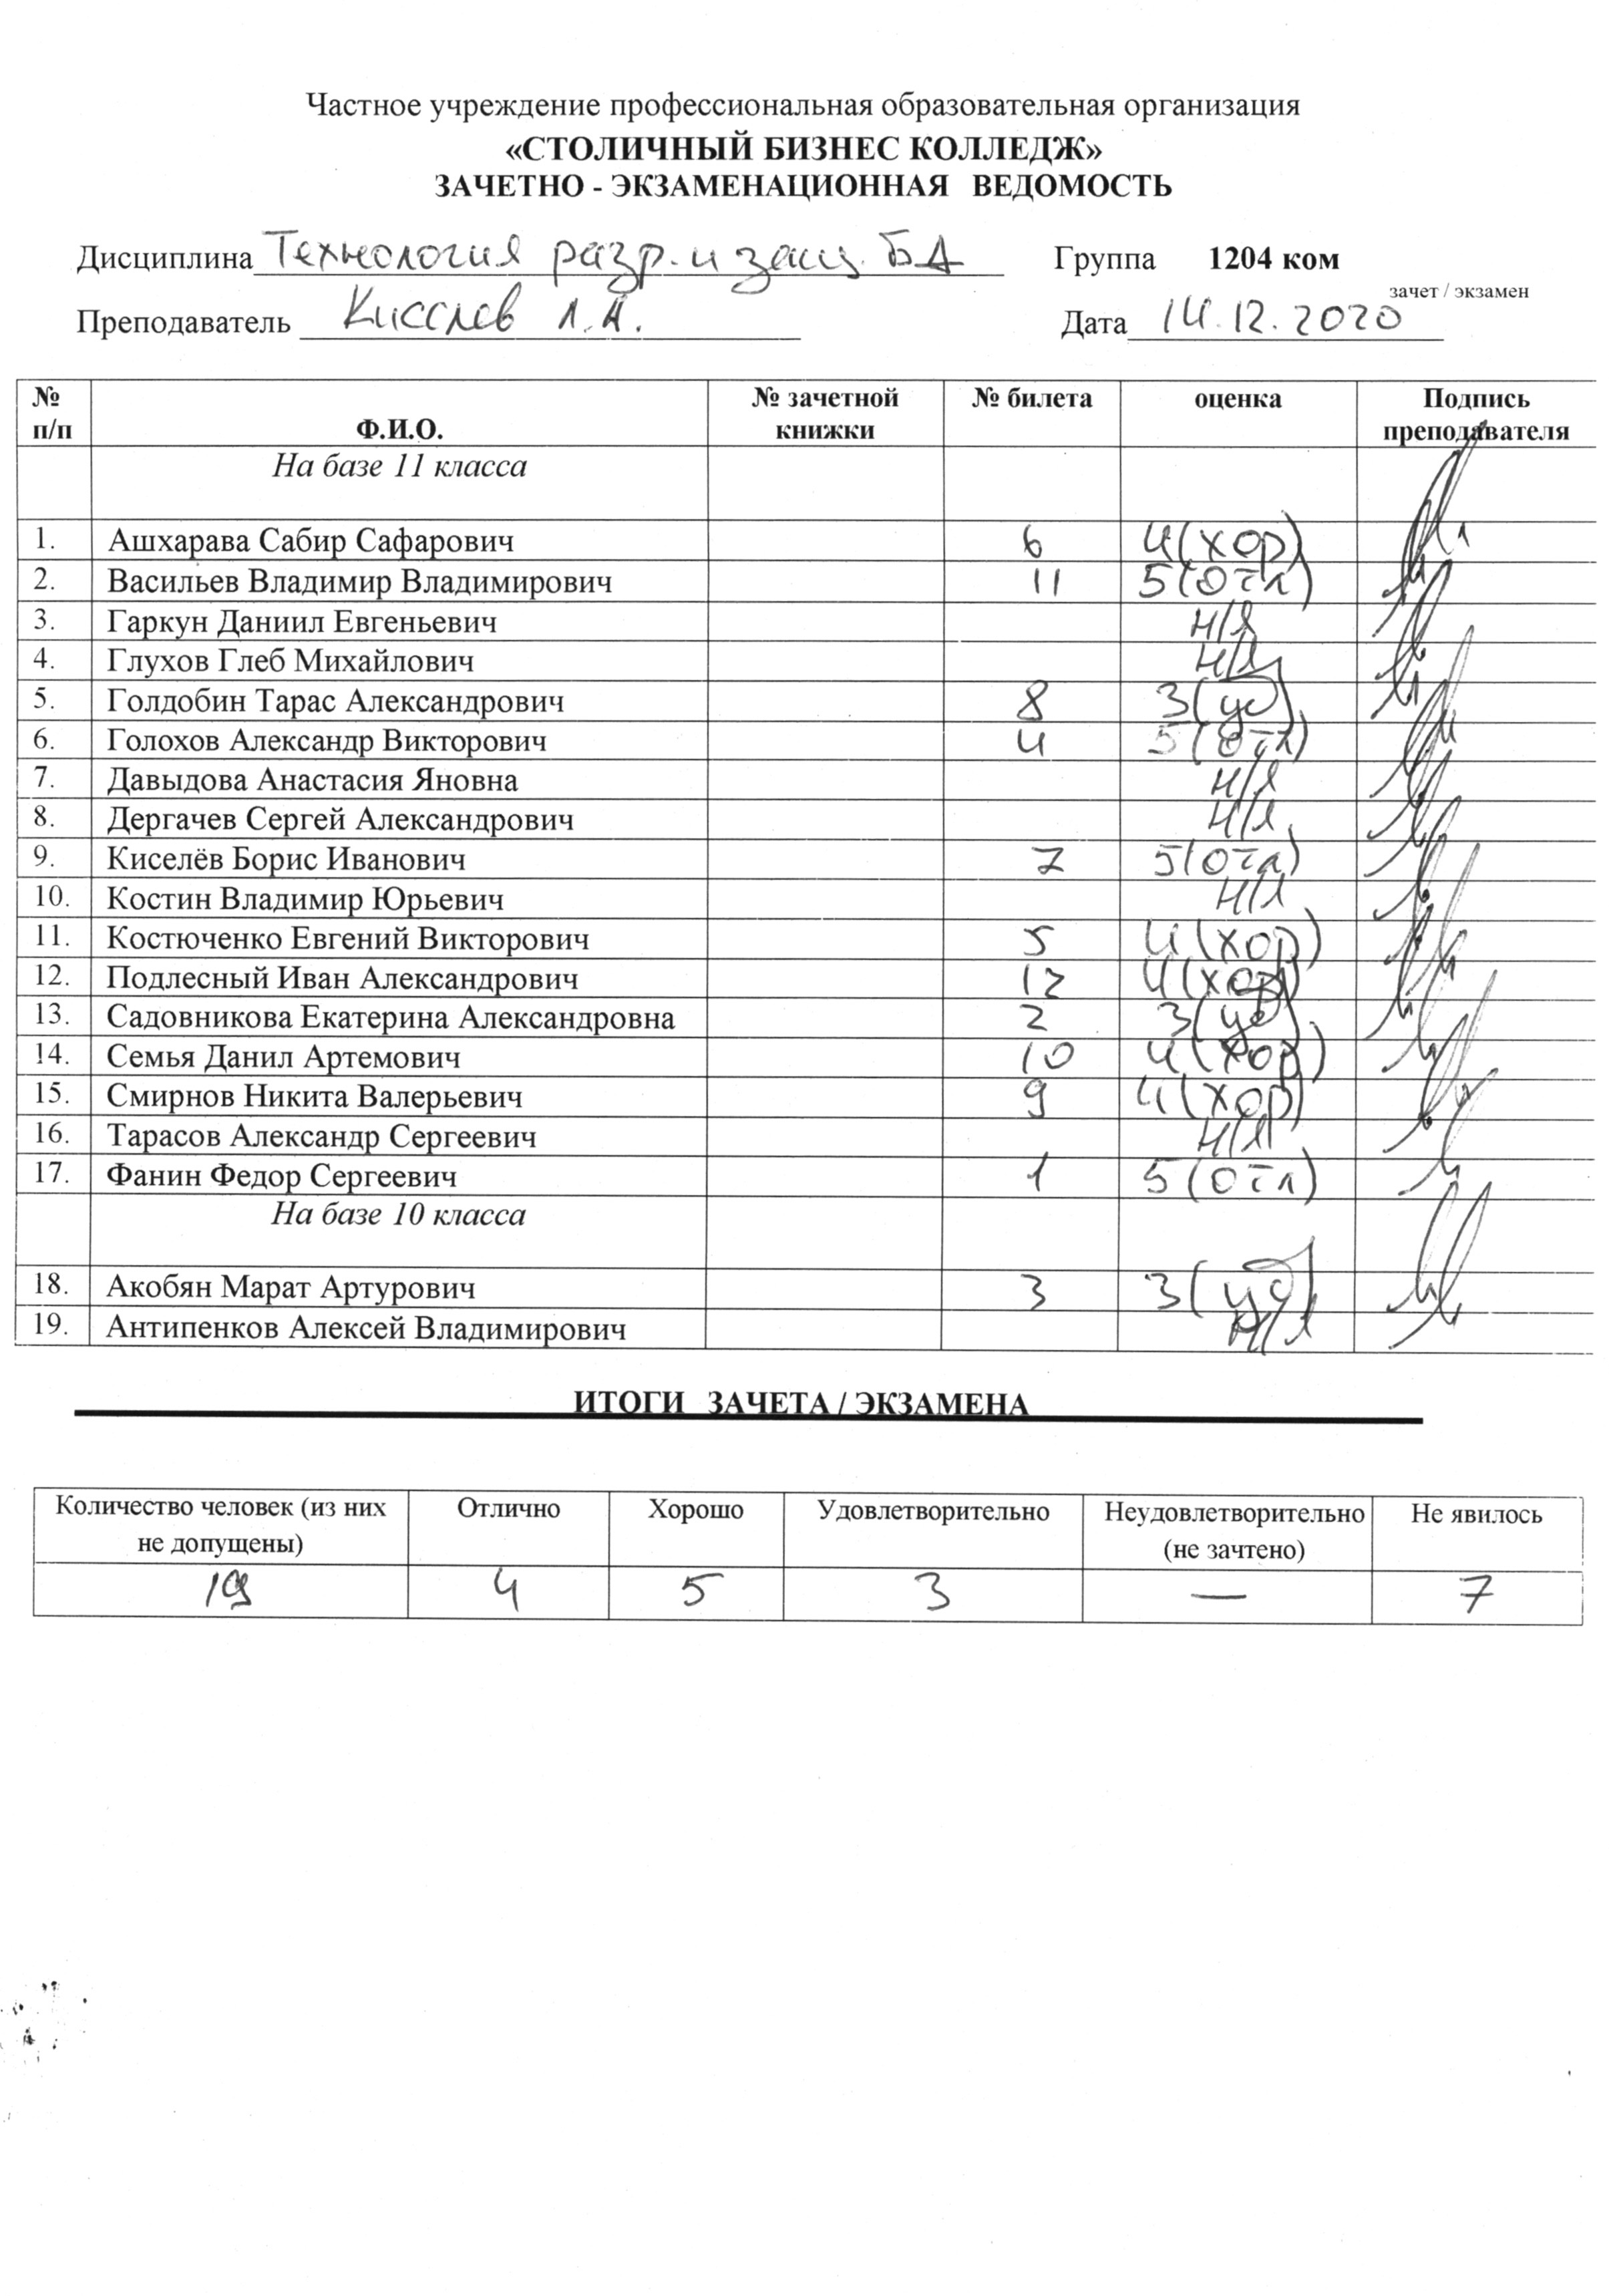 Частное учреждение профессиональная образовательная организация
«СТОЛИЧНЫЙ БИЗНЕС КОЛЛЕДЖ»
ЗАЧЕТНО - ЭКЗАМЕНАЦИОННАЯ ВЕДОМОСТЬ
Дисциплина Технология разр. и защ. БД Группа 1204 ком
зачет / экзамен
Преподаватель Киселев Л.А. Дата 14.12.2020
№ п/п Ф.И.О. № зачетной книжки № билета оценка Подпись преподавателя
На базе 11 класса
1. Ашхарава Сабир Сафарович 6 4(хор)
2. Васильев Владимир Владимирович 11 5(отл)
3. Гаркун Даниил Евгеньевич н/я
4. Глухов Глеб Михайлович н/я
5. Голдобин Тарас Александрович 8 3(уд)
6. Голохов Александр Викторович 4 5(отл)
7. Давыдова Анастасия Яновна н/я
8. Дергачев Сергей Александрович н/я
9. Киселёв Борис Иванович 7 5(отл)
10. Костин Владимир Юрьевич н/я
11. Костюченко Евгений Викторович 5 4(хор)
12. Подлесный Иван Александрович 12 4(хор)
13. Садовникова Екатерина Александровна 2 3(уд)
14. Семья Данил Артемович 10 4(хор)
15. Смирнов Никита Валерьевич 9 4(хор)
16. Тарасов Александр Сергеевич н/я
17. Фанин Федор Сергеевич 1 5(отл)
На базе 10 класса
18. Акобян Марат Артурович 3 3(уд)
19. Антипенков Алексей Владимирович н/я
ИТОГИ ЗАЧЕТА / ЭКЗАМЕНА
Количество человек (из них не допущены) Отлично Хорошо Удовлетворительно Неудовлетворительно (не зачтено) Не явилось
19 4 5 3 — 7